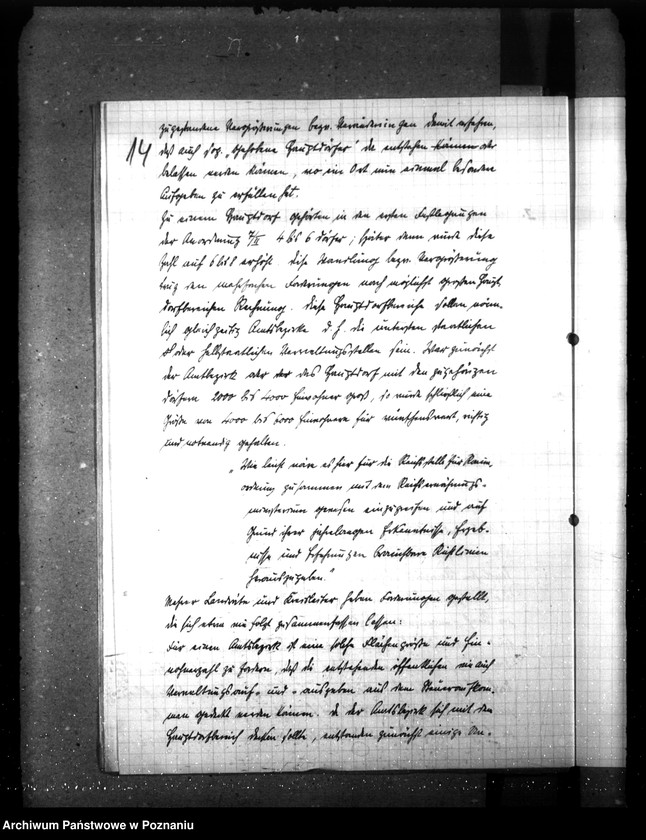 14
zugestandene Vergrößerungen bezw. Veränderungen damit ersehen,
daß auch sog. „gehobene Hauptdörfer" da entstehen können oder
belassen werden können, wo ein Ort nun einmal besondere
Aufgaben zu erfüllen hat.
Zu einem Hauptdorf gehörten in den ersten Festlegungen
der Anordnung 4 bis 6 Dörfer; später dann wurde diese
Zahl auf 6 bis 8 erhöht. Diese Wandlung bezw. Vergrößerung
trug den Forderungen nach möglichst großen Haupt-
dorfbereichen Rechnung. Diese Hauptdorfbereiche sollen näm-
lich gleichzeitig Amtsbezirke d. h. die untersten staatlichen
oder halbstaatlichen Verwaltungsstellen sein. War zunächst
der Amtsbezirk oder das Hauptdorf mit den zugehörigen
Dörfern 2000 bis 4000 Einwohner groß, so wurde schließlich eine
Größe von 4000 bis 6000 Einwohnern für wünschenswert, richtig
und notwendig gehalten.
„Wie leicht wäre es hier für die Reichsstelle für Raum-
ordnung zusammen mit dem Reichsernährungs-
ministerium gewesen einzugreifen und auf
Grund ihrer jahrelangen Erkenntnisse, Ergeb-
nisse und Erfahrungen brauchbare Richtlinien
herauszugeben."
Landräte und Kreisleiter haben Forderungen gestellt,
die sich etwa wie folgt zusammenfassen lassen:
Für einen Amtsbezirk ist eine solche Flächengröße und Ein-
wohnerzahl zu fordern, daß die entstehenden öffentlichen wie auch
Verwaltungsauf- und -ausgaben aus dem Steueraufkom-
men gedeckt werden können. Da der Amtsbezirk sich mit dem
Hauptdorfbereich decken sollte, entstanden zunächst einige
Archiwum Państwowe w Poznaniu